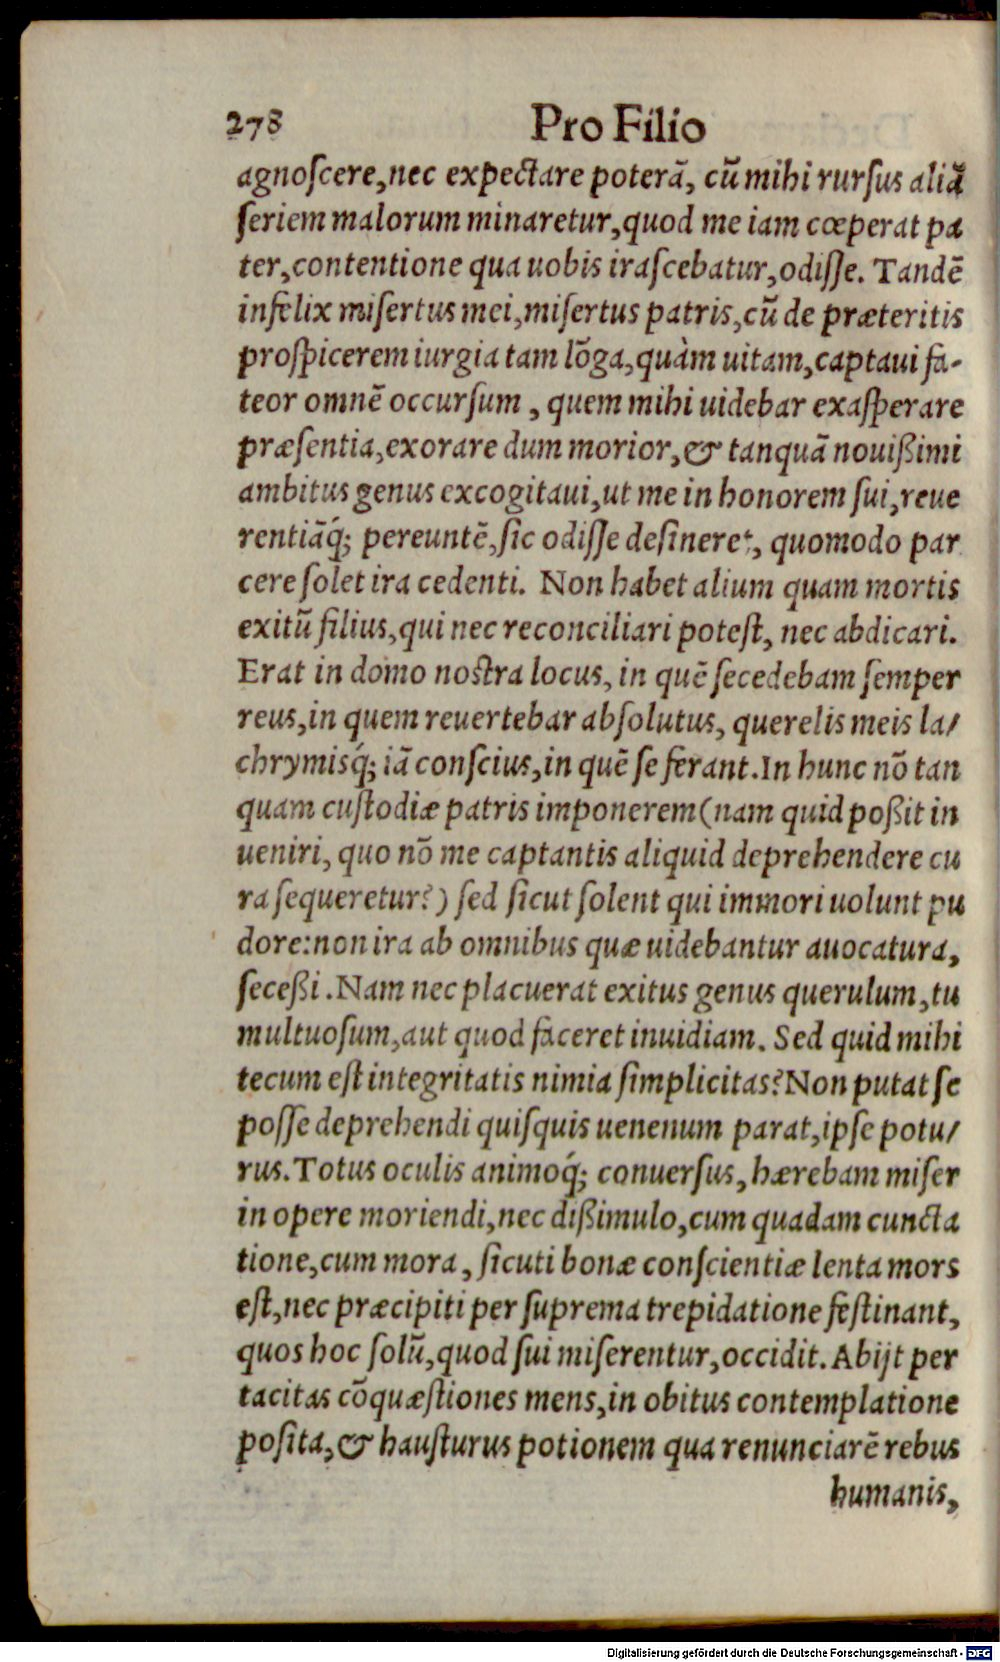 278 Pro Filio
agnoſcere,nec expectare poterã, cũ mihi rurſus aliã
ſeriem malorum minaretur,quod me iam cœperat pa
ter,contentione qua uobis iraſcebatur,odiſſe. Tandẽ
infelix miſertus mei,miſertus patris,cũ de præteritis
proſpicerem iurgia tam lõga,quàm uitam,captaui fa-
teor omnẽ occurſum , quem mihi uidebar exaſperare
præſentia,exorare dum morior,& tanquã nouißimi
ambitus genus excogitaui,ut me in honorem ſui,reue
rentiãq́; pereuntẽ,ſic odiſſe deſineret, quomodo par
cere ſolet ira cedenti. Non habet alium quam mortis
exitũ filius,qui nec reconciliari poteſt, nec abdicari.
Erat in domo noſtra locus, in quẽ ſecedebam ſemper
reus,in quem reuertebar abſolutus, querelis meis la/
chrymisq́; iã conſcius,in quẽ ſe ferant.In hunc nõ tan
quam cuſtodiæ patris imponerem(nam quid poßit in
ueniri, quo nõ me captantis aliquid deprehendere cu
ra ſequeretur?) ſed ſicut ſolent qui immori uolunt pu
dore:non ira ab omnibus quæ uidebantur auocatura,
ſeceßi.Nam nec placuerat exitus genus querulum,tu
multuoſum,aut quod faceret inuidiam. Sed quid mihi
tecum eſt integritatis nimia ſimplicitas?Non putat ſe
poſſe deprehendi quiſquis uenenum parat,ipſe potu/
rus.Totus oculis animoq́; conuerſus, hærebam miſer
in opere moriendi,nec dißimulo,cum quadam cuncta
tione,cum mora, ſicuti bonæ conſcientiæ lenta mors
eſt,nec præcipiti per ſuprema trepidatione feſtinant,
quos hoc ſolũ,quod ſui miſerentur,occidit.Abijt per
tacitas cõquæſtiones mens,in obitus contemplatione
poſita,& hauſturus potionem qua renunciarẽ rebus
humanis,
Digitalisierung gefördert durch die Deutsche Forschungsgemeinschaft - DFG